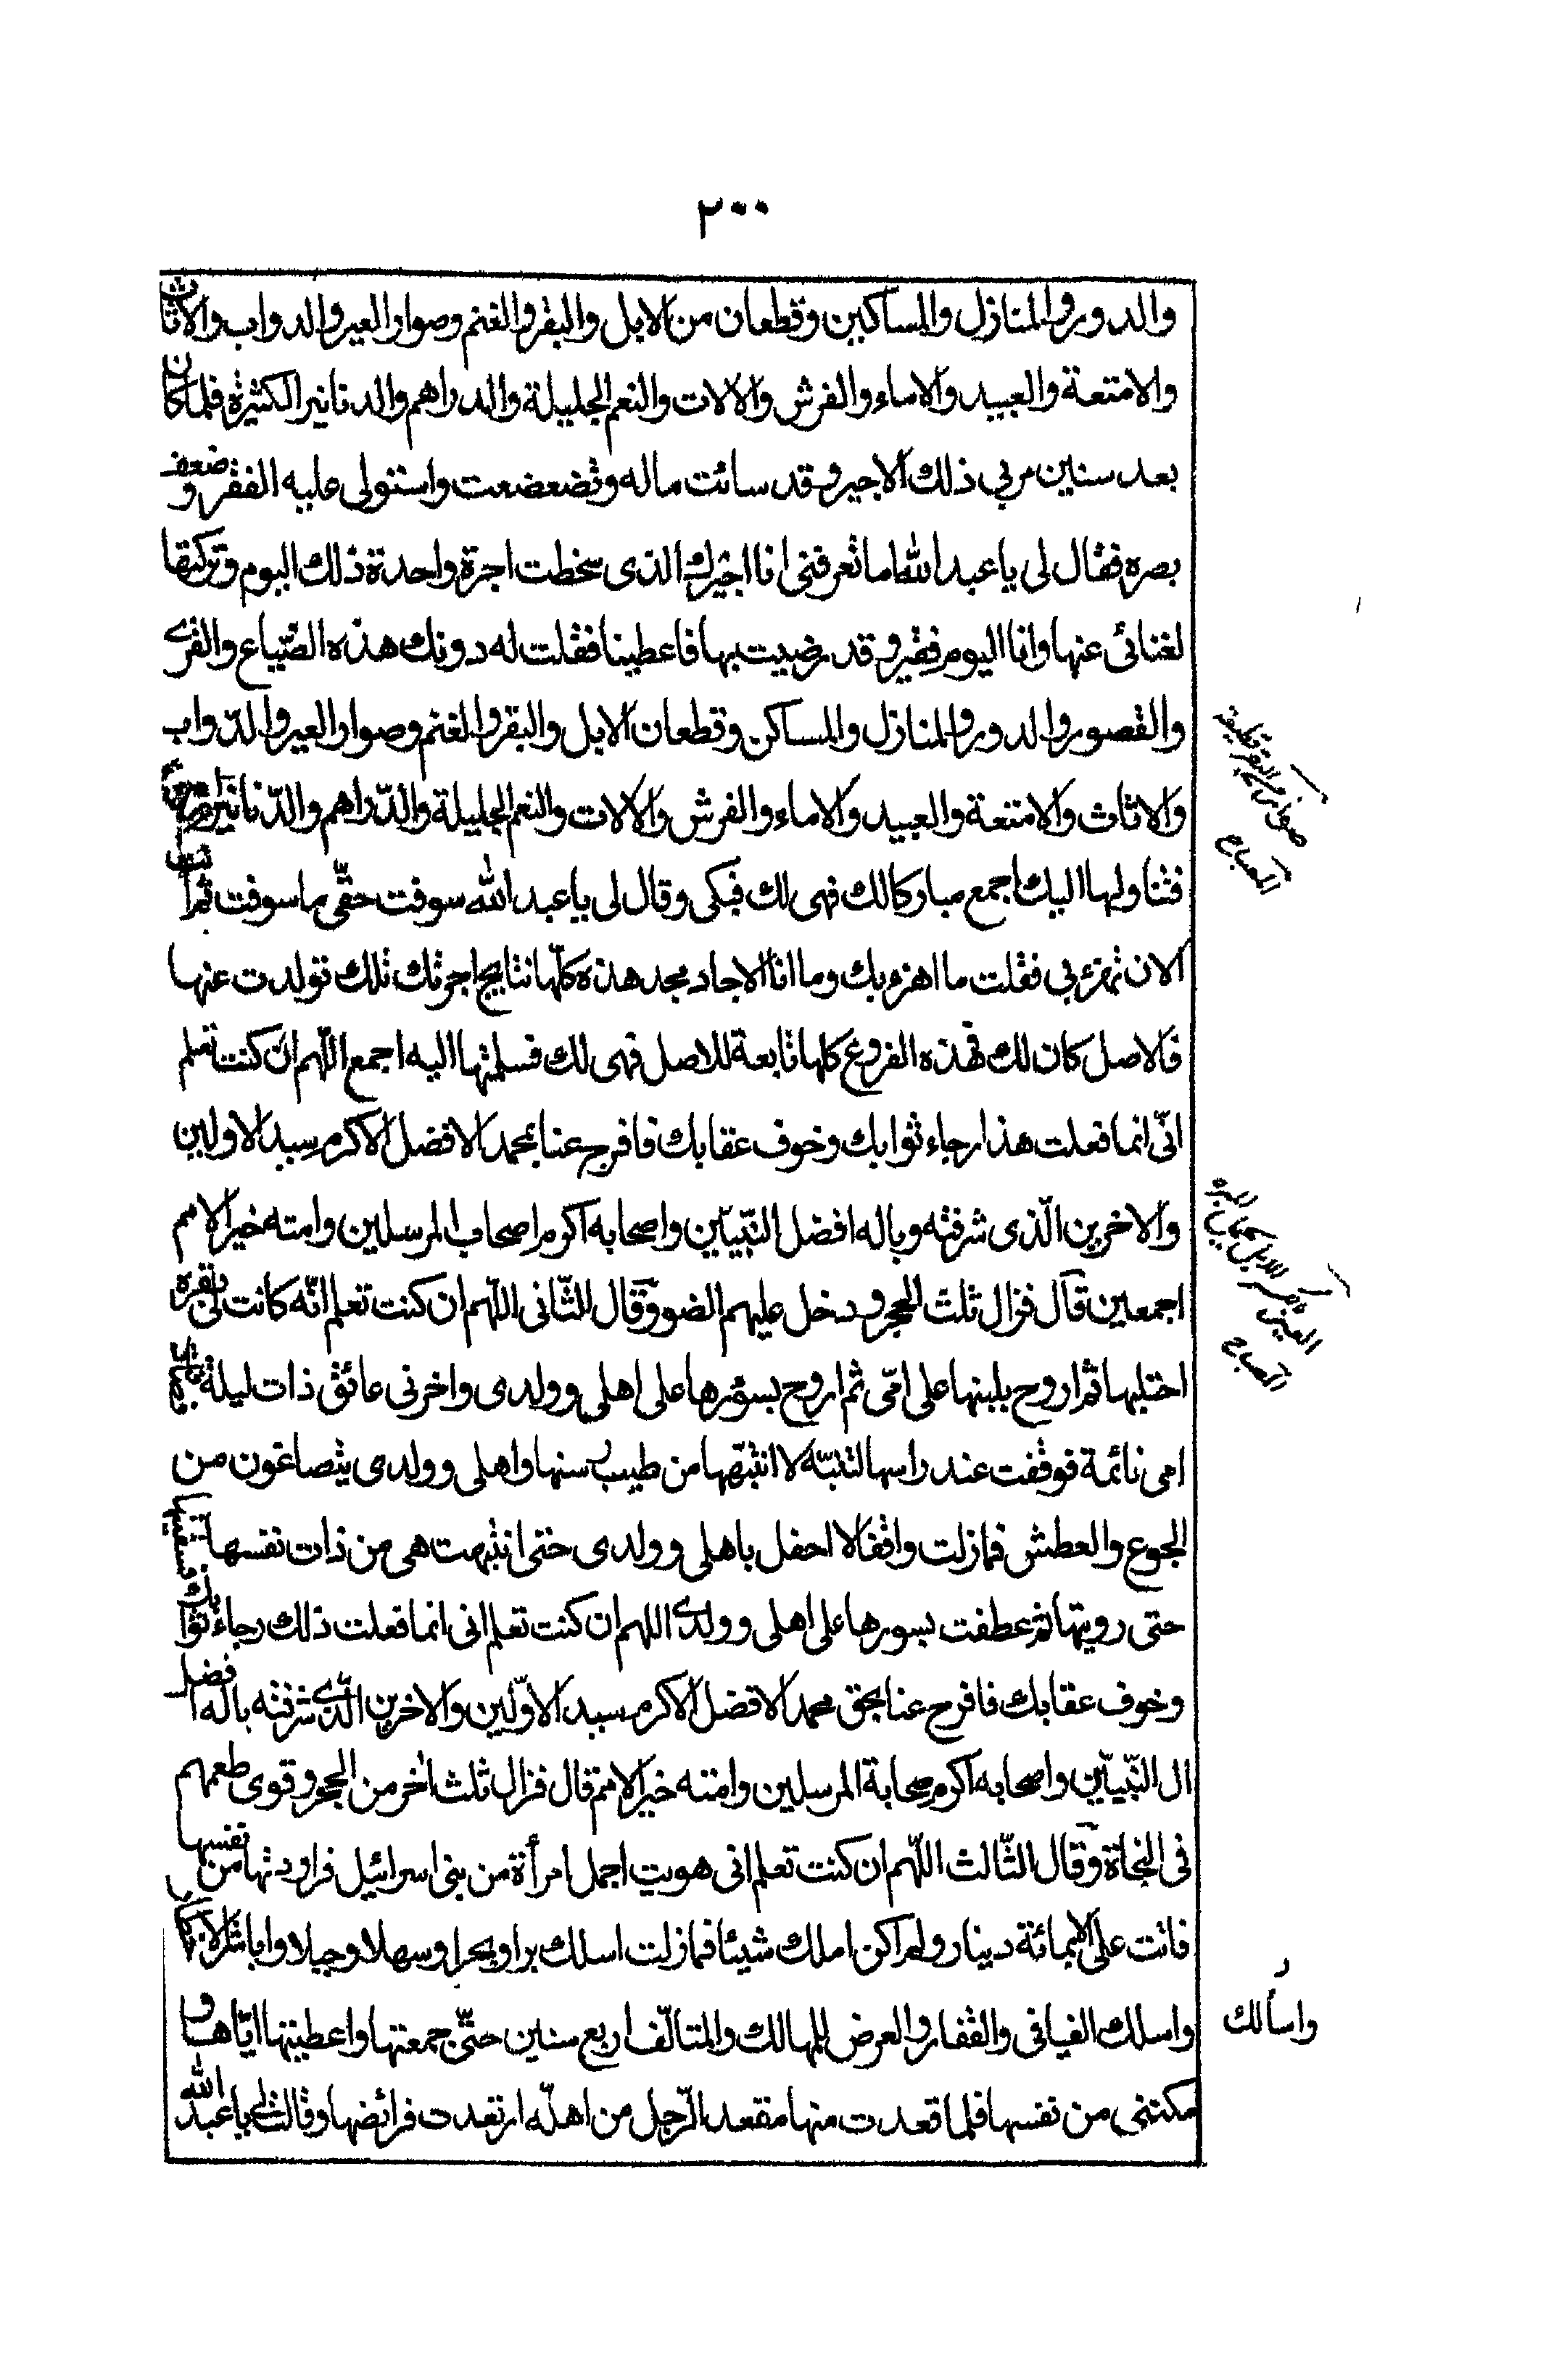 ٢٠٠
والدور والمنازل والمساكين وقطعان من الابل والبقر والغنم وصوار العير والدواب والاثاث
والامتعة والعبيد والاماء والفرش والالات والنعم الجليلة والدراهم والدنانير الكثيرة فلما كان
بعد سنين مر بي ذلك الاجير وقد سائت ماله وتضعضعت واستولى عليه الفقر وضعف
بصره فقال لى يا عبد الله اما تعرفنى انا اجيرك الذى سخطت اجرة واحدة ذلك اليوم وتركتها
لغنائى عنها وانا اليوم فقير وقد رضيت بها فاعطينا فقلت له دونك هذه الضّياع والقرى
والقصور والدور والمنازل والمساكن وقطعان الابل والبقر والغنم وصوار العير والدّواب
والاثاث والامتعة والعبيد والاماء والفرش والالات والنعم الجليلة والدّراهم والدّنانير
فتناولها اليك اجمع مباركا لك فهى لك فبكى وقال لى يا عبد الله سوفت حقّى ما سوفت ثم انت
الان تهزء بى فقلت ما اهزء بك وما انا الا جاد مجد هذه كلّها نتايج اجرتك تلك تولدت عنها
فالاصل كان لك فهذه الفروع كلها تابعة للاصل فهى لك فسلمتها اليه اجمع اللّهم ان كنت تعلم
انّى انما فعلت هذا رجاء ثوابك وخوف عقابك فافرج عنا بمحمد الافضل الاكرم سيد الاولين
والاخرين الّذى شرفته وباله افضل النّبيّين واصحابه اكرم اصحاب المرسلين وامته خير الامم
اجمعين قال فزال ثلث الحجر ودخل عليهم الضوء وقال الثّانى اللّهم ان كنت تعلم انّه كانت لى بقرة
احتلبها ثم اروح بلبنها على امّى ثم اروح بسؤرها على اهلى وولدى واخرنى عائق ذات ليلة
امى نائمة فوقفت عند راسها لتنبّه لا انتبّهها من طيب وسنها واهلى وولدى يتصاغون من
الجوع والعطش فمازلت واقفا لا احفل باهلى وولدى حتى انتبهت هى من ذات نفسها فسقيتها
حتى رويتها ثم عطفت بسورها على اهلى وولدى اللهم ان كنت تعلم انى انما فعلت ذلك رجاء ثوابك
وخوف عقابك فافرج عنا بحق محمد الافضل الاكرم سيد الاوّلين والاخرين الّذى شرفته باله افضل
ال النّبيّين واصحابه اكرم صحابة المرسلين وامته خير الامم قال فزال ثلث اخر من الحجر وقوى طمعهم
فى النجاة وقال الثّالث اللّهم ان كنت تعلم انى هويت اجمل امرأة من بنى اسرائيل فراودتها من نفسها
فابت على الا بمائة دينار ولم اكن املك شيئا فمازلت اسلك برا وبحرا وسهلا وجبلا
واسلك الفيافى والقفار والعرض للمهالك والمتالّف اربع سنين حتّى جمعتها واعطيتها ايّاها و
مكنتنى من نفسها فلما قعدت منها مقعد الرّجل من اهلّه ارتعدت فرائصها وقالت لى يا عبد الله
واسألك